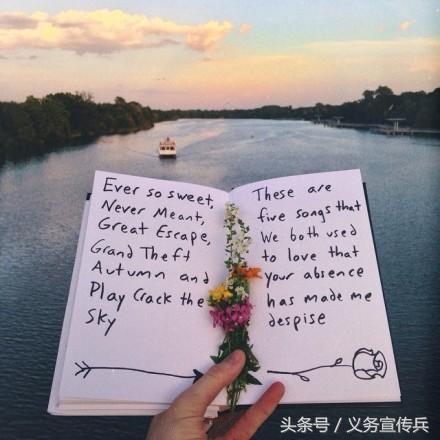 Ever so sweet,
Never Meant,
Great Escape,
Grand Theft
Autumn and
Play Crack the
Sky
These are
five songs that
We both used
to love that
your absence
has made me
despise
头条号 / 义务宣传兵